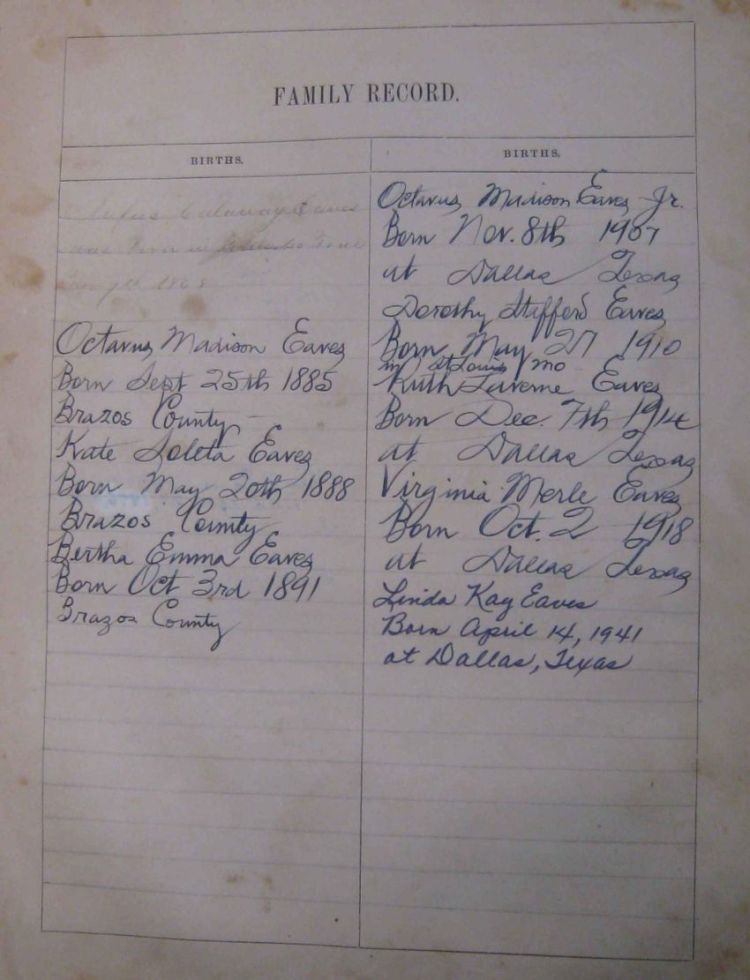 FAMILY RECORD.
BIRTHS.
Eaves
was
Octavus Madison Eaves
Born Sept 25th 1885
Brazos County
Kate Loleta Eaves
Born May 20th 1888
Brazos County
Bertha Emma Eaves
Born Oct 3rd 1891
Brazos County
BIRTHS.
Octavus Madison Eaves Jr.
Born Nov. 8th 1907
at Dallas Texas
Dorothy Stafford Eaves
Born May 27 1910
in St Louis Mo
Ruth Laverne Eaves
Born Dec. 7th 1914
at Dallas Texas
Virginia Merle Eaves
Born Oct. 2 1918
at Dallas Texas
Linda Kay Eaves
Born April 14, 1941
at Dallas, Texas